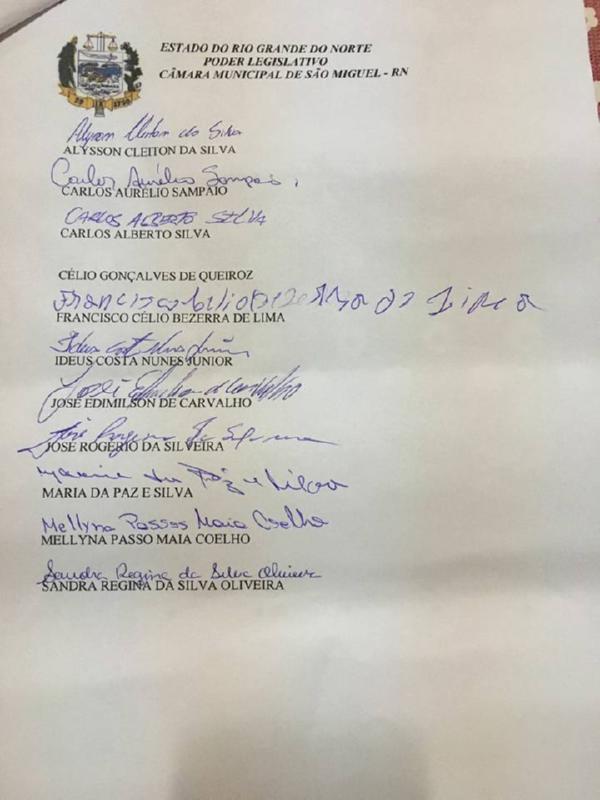 ESTADO DO RIO GRANDE DO NORTE
PODER LEGISLATIVO
CÂMARA MUNICIPAL DE SÃO MIGUEL - RN
Alysson Cleiton da Silva
ALYSSON CLEITON DA SILVA
Carlos Aurélio Sampaio
CARLOS AURÉLIO SAMPAIO
CARLOS ALBERTO SILVA
CARLOS ALBERTO SILVA
CÉLIO GONÇALVES DE QUEIROZ
Francisco Célio Bezerra de Lima
FRANCISCO CÉLIO BEZERRA DE LIMA
Ideus Costa Nunes Júnior
IDEUS COSTA NUNES JUNIOR
José Edimilson de Carvalho
JOSÉ EDIMILSON DE CARVALHO
José Rogério da Silveira
JOSÉ ROGÉRIO DA SILVEIRA
Maria da Paz e Silva
MARIA DA PAZ E SILVA
Mellyna Passos Maia Coelho
MELLYNA PASSO MAIA COELHO
Sandra Regina da Silva Oliveira
SANDRA REGINA DA SILVA OLIVEIRA